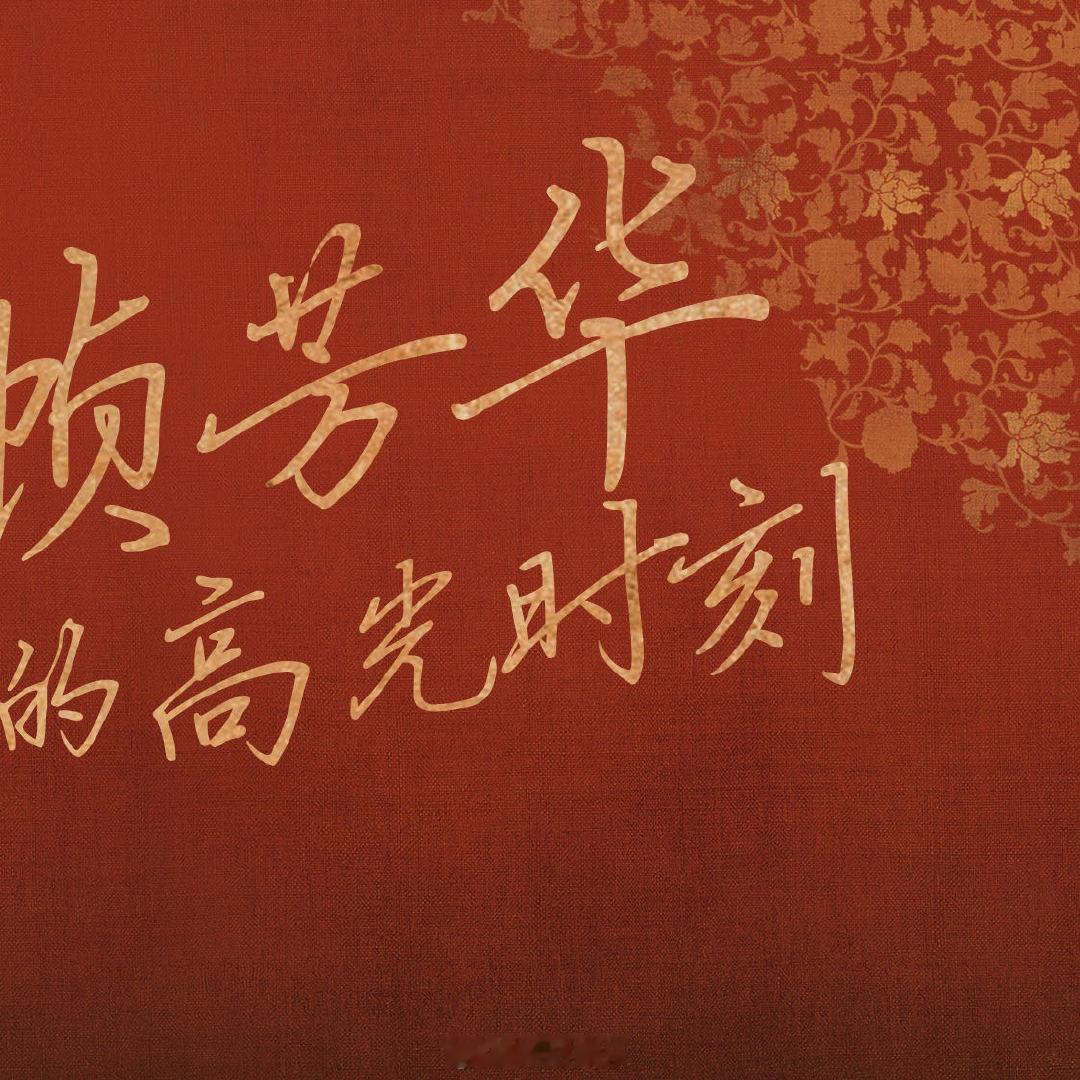 帧芳华
的高光时刻